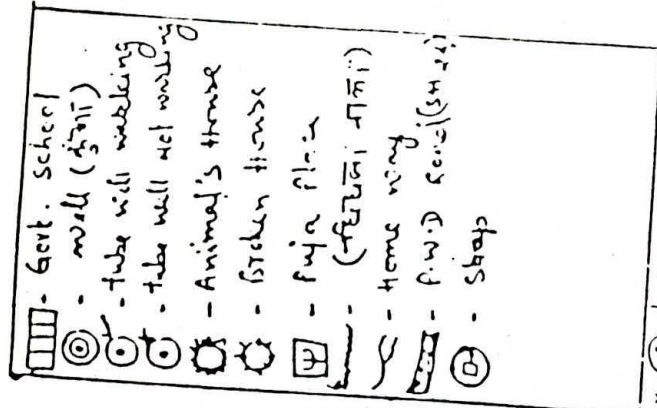 - Govt. School
- well (कुँआ)
- tube well working
- tube well not working
- Animal's House
- Broken House
- Puja Place
- Home way
- P.W.D Road (SH
- Shop